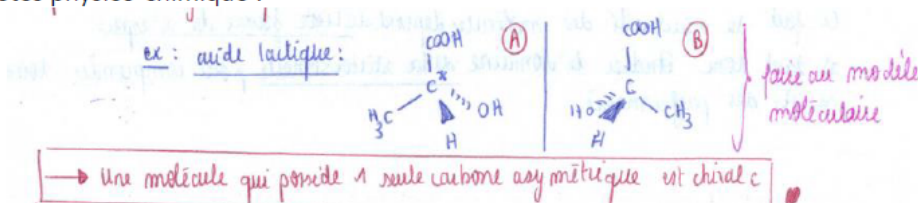 physico-chimique :
ex : acide lactique :
COOH
A
COOH
B
C*
C
H3C
OH
HO
CH3
H
H
faire au modèle
moléculaire
→ Une molécule qui possède 1 seule carbone asymétrique est chirale